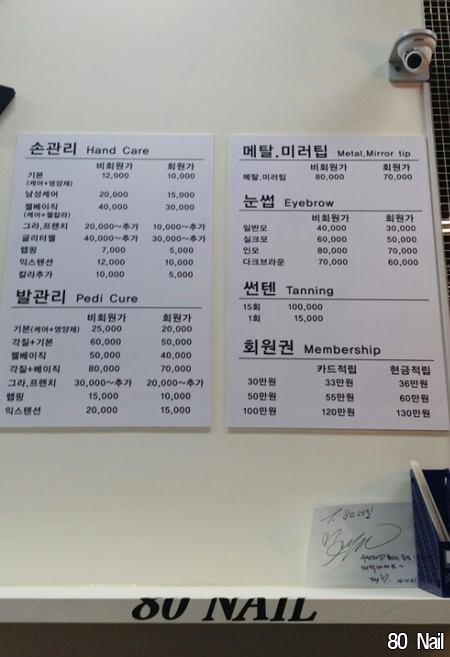 손관리 Hand Care
비회원가 회원가
기본 12,000 10,000
(케어+영양제)
남성케어 20,000 15,000
젤베이직 40,000 30,000
(케어+젤칼라)
그라,프렌치 20,000~추가 10,000~추가
글리터젤 40,000~추가 30,000~추가
랩핑 7,000 5,000
익스텐션 12,000 10,000
칼라추가 10,000 5,000
발관리 Pedi Cure
비회원가 회원가
기본(케어+영양제) 25,000 20,000
각질+기본 60,000 50,000
젤베이직 50,000 40,000
각질+베이직 80,000 70,000
그라,프렌치 30,000~추가 20,000~추가
랩핑 15,000 10,000
익스텐션 20,000 15,000
메탈.미러팁 Metal,Mirror tip
비회원가 회원가
메탈.미러팁 80,000 70,000
눈썹 Eyebrow
비회원가 회원가
일반모 40,000 30,000
실크모 60,000 50,000
인모 80,000 70,000
다크브라운 70,000 60,000
썬텐 Tanning
15회 100,000
1회 15,000
회원권 Membership
카드적립 현금적립
30만원 33만원 36만원
50만원 55만원 60만원
100만원 120만원 130만원
80 네일
80 NAIL
80 Nail